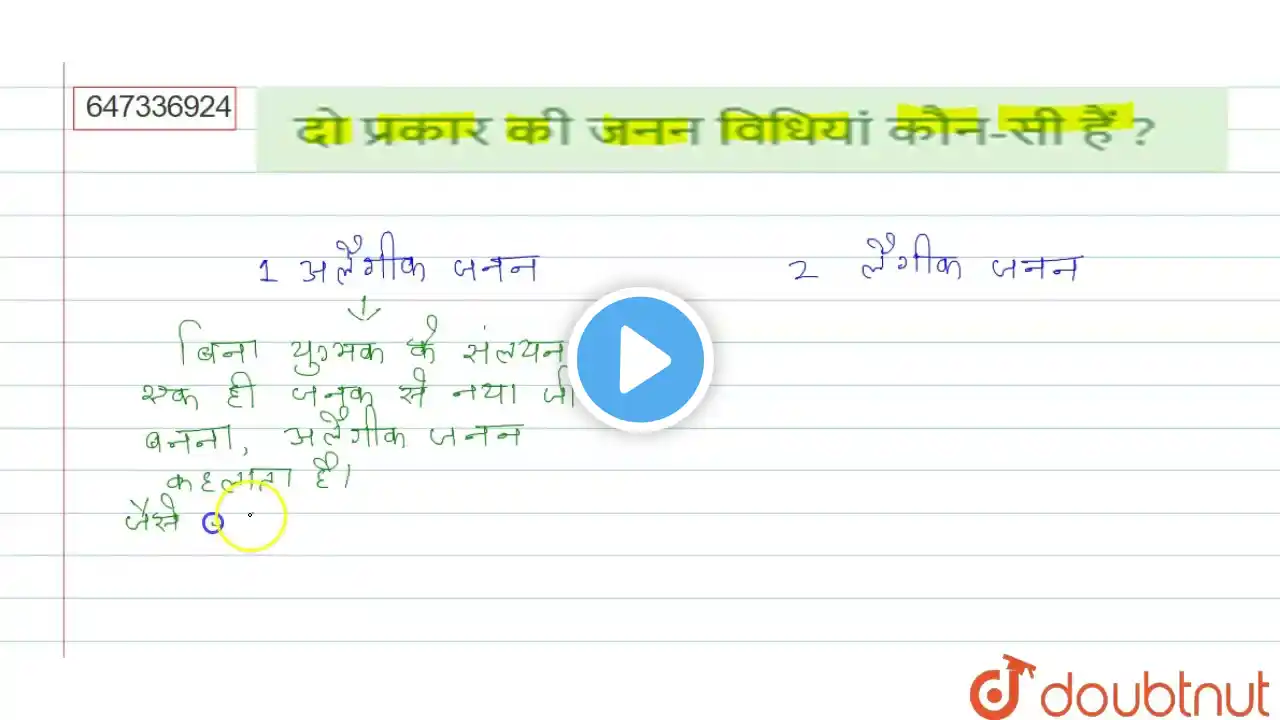 647336924
दो प्रकार की जनन विधियां कौन-सी हैं ?
1 अलैंगीक जनन
2 लैंगीक जनन
बिना युग्मक के संलयन
एक ही जनक से नया जी
बनना, अलैंगीक जनन
कहलाता है।
जैसे
doubtnut